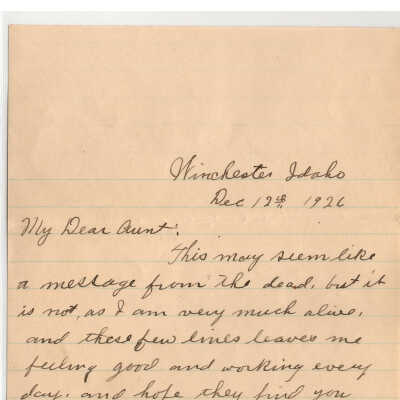 Winchester Idaho
Dec 12th 1926
My Dear Aunt:
This may seem like
a message from the dead, but it
is not, as I am very much alive,
and these few lines leaves me
feeling good and working every
day, and hope they find you